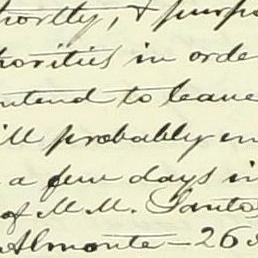 hortly, & purpo
horities in orde
ntend to leave
ill probably en
a few days in
of M. M. Santos
Almonte - 26